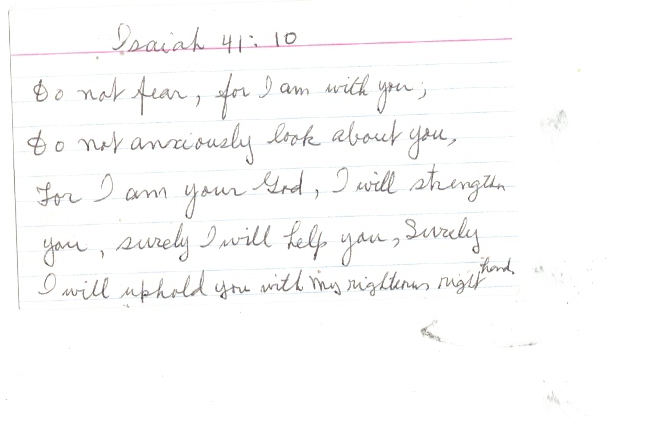 Isaiah 41:10
Do not fear, for I am with you;
Do not anxiously look about you,
For I am your God, I will strengthen
you, surely I will help you, Surely
I will uphold you with my righteous right hand.